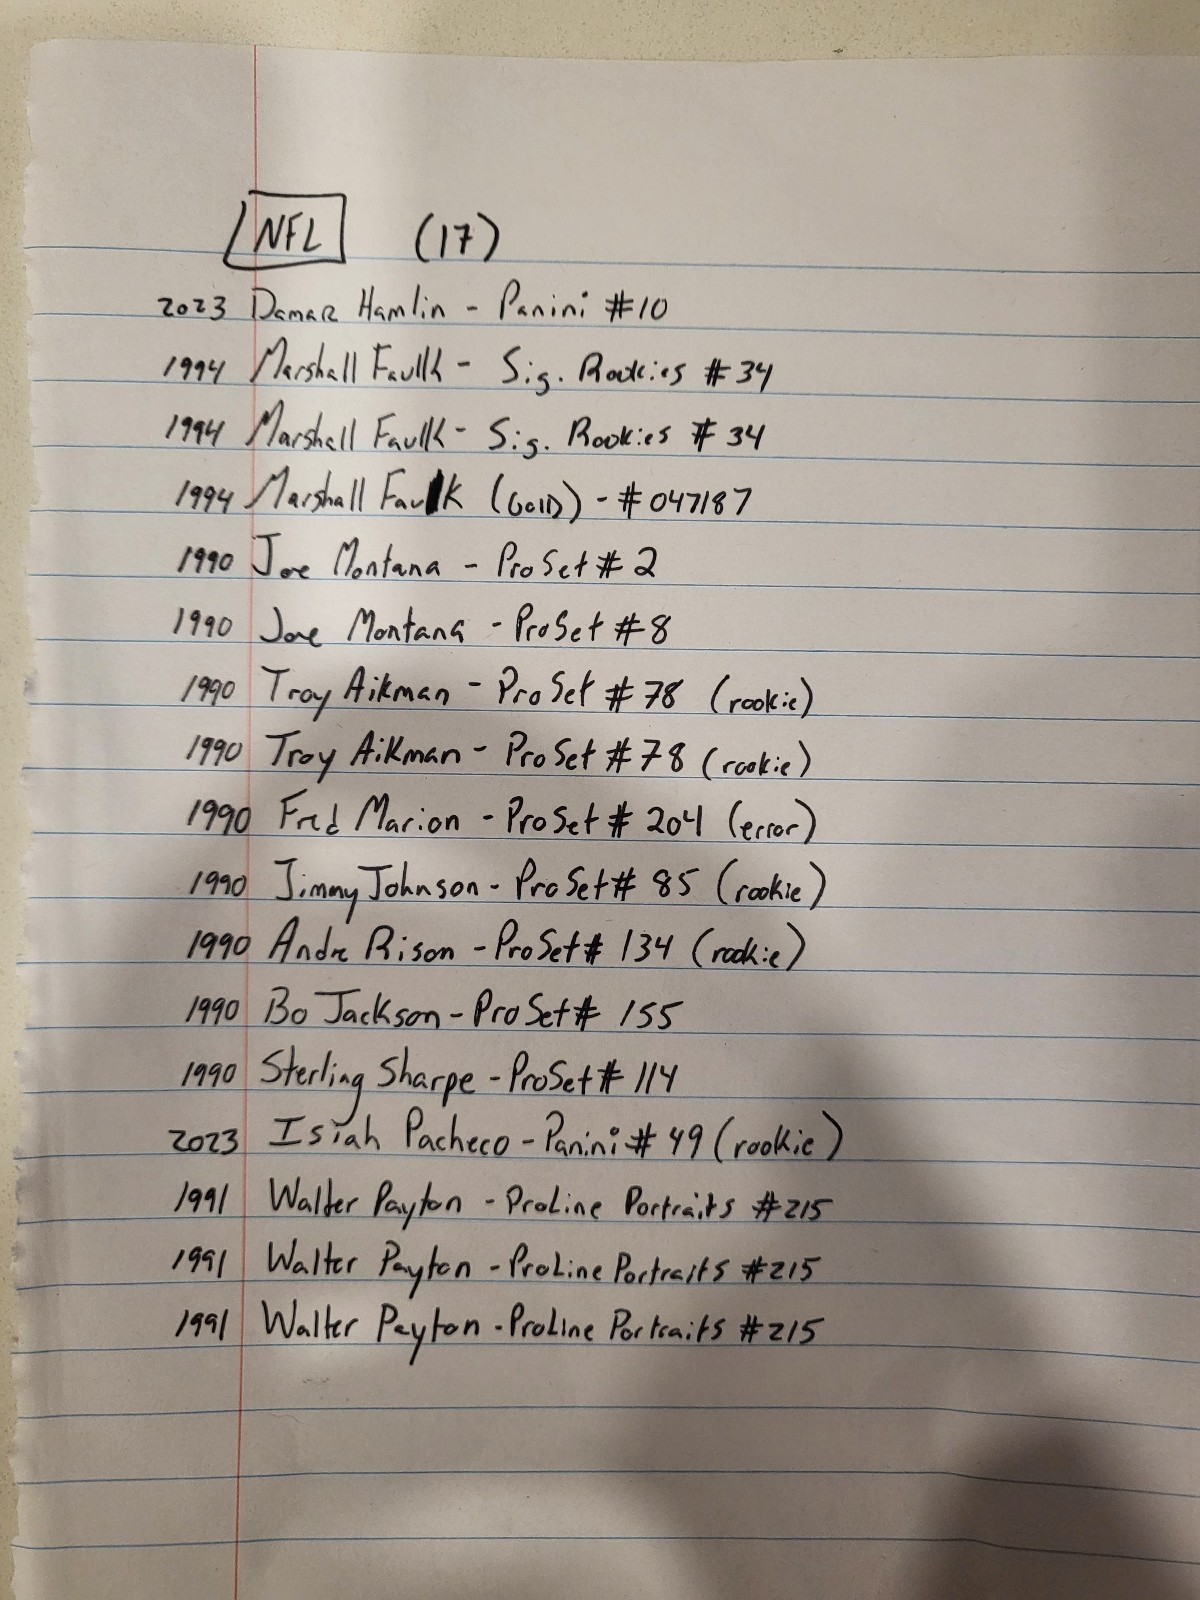 NFL (17)
2023 Damar Hamlin - Panini #10
1994 Marshall Faulk - Sig. Rookies #34
1994 Marshall Faulk - Sig. Rookies #34
1994 Marshall Faulk (Gold) - #047187
1990 Joe Montana - ProSet #2
1990 Joe Montana - ProSet #8
1990 Troy Aikman - ProSet #78 (rookie)
1990 Troy Aikman - ProSet #78 (rookie)
1990 Fred Marion - ProSet #204 (error)
1990 Jimmy Johnson - ProSet #85 (rookie)
1990 Andre Rison - ProSet #134 (rookie)
1990 Bo Jackson - ProSet #155
1990 Sterling Sharpe - ProSet #114
2023 Isiah Pacheco - Panini #49 (rookie)
1991 Walter Payton - ProLine Portraits #215
1991 Walter Payton - ProLine Portraits #215
1991 Walter Payton - ProLine Portraits #215